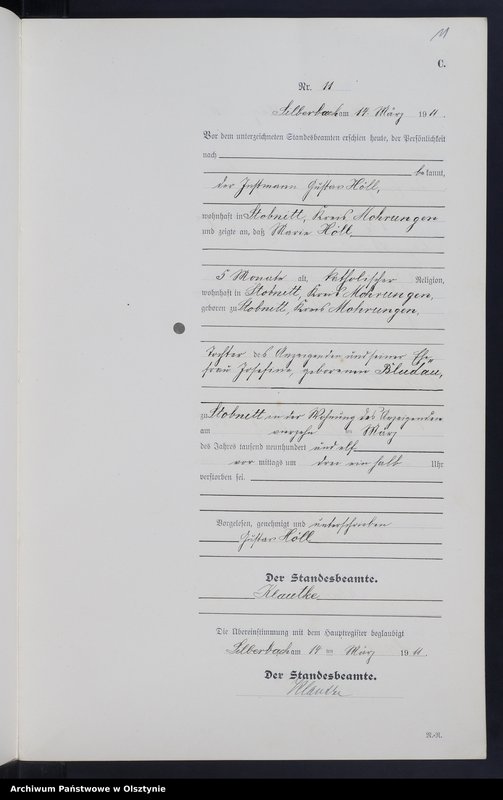 11
C.
Nr. 11
Silberbach am 14. März 1911.
Vor dem unterzeichneten Standesbeamten erschien heute, der Persönlichkeit
nach
bekannt,
der Instmann Gustav Höll,
wohnhaft in Stobnitt, Kreis Mohrungen
und zeigte an, daß Marie Höll,
5 Monate alt, katholischer Religion,
wohnhaft in Stobnitt, Kreis Mohrungen,
geboren zu Stobnitt, Kreis Mohrungen,
Tochter des Anzeigenden und seiner Ehe-
frau Josefine, geborenen Bludau,
zu Stobnitt in der Wohnung des Anzeigenden
am vierzehn ten März
des Jahres tausend neunhundert und elf
vor mittags um drei ein halb Uhr
verstorben sei.
Vorgelesen, genehmigt und unterschrieben
Gustav Höll
Der Standesbeamte.
Klautke
Die Übereinstimmung mit dem Hauptregister beglaubigt
Silberbach am 14 ten März 1911.
Der Standesbeamte.
Klautke
Archiwum Państwowe w Olsztynie